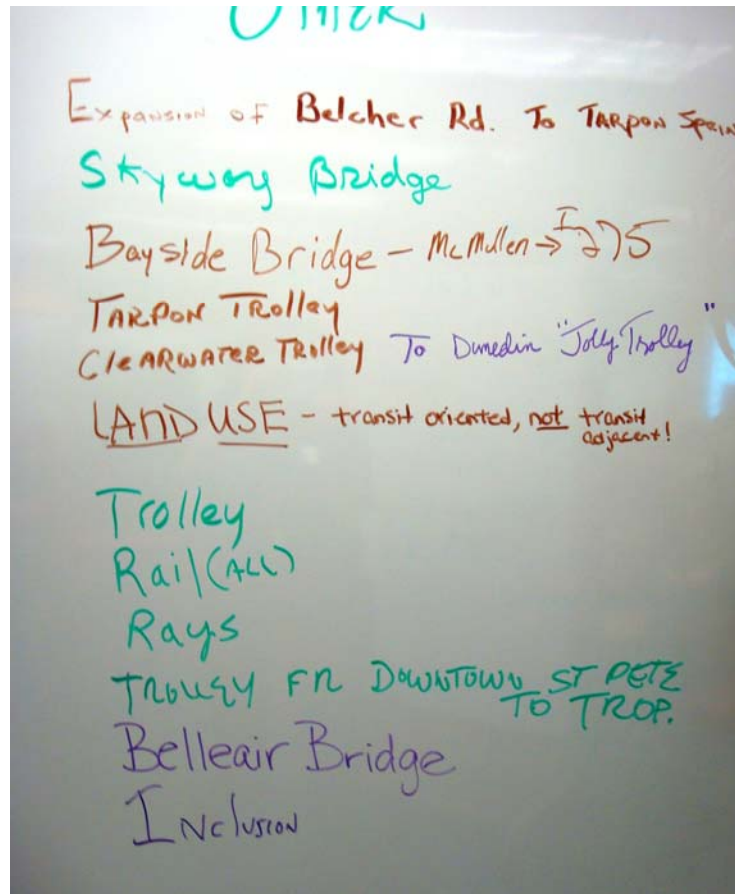 OTHER
Expansion of Belcher Rd. To TARPON Sprin
Skyway Bridge
Bayside Bridge - McMullen → I 275
TARPON TROlley
CleARWATER TROlley To Dunedin "Jolly Trolley"
LAND USE - transit oriented, not transit
adjacent!
Trolley
Rail (ALL)
Rays
TROLLEY FR DOWNTOWN ST PETE
TO TROP.
Belleair Bridge
INclusion